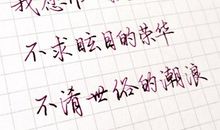 我愿
不求眩目的荣华
不淆世俗的潮浪